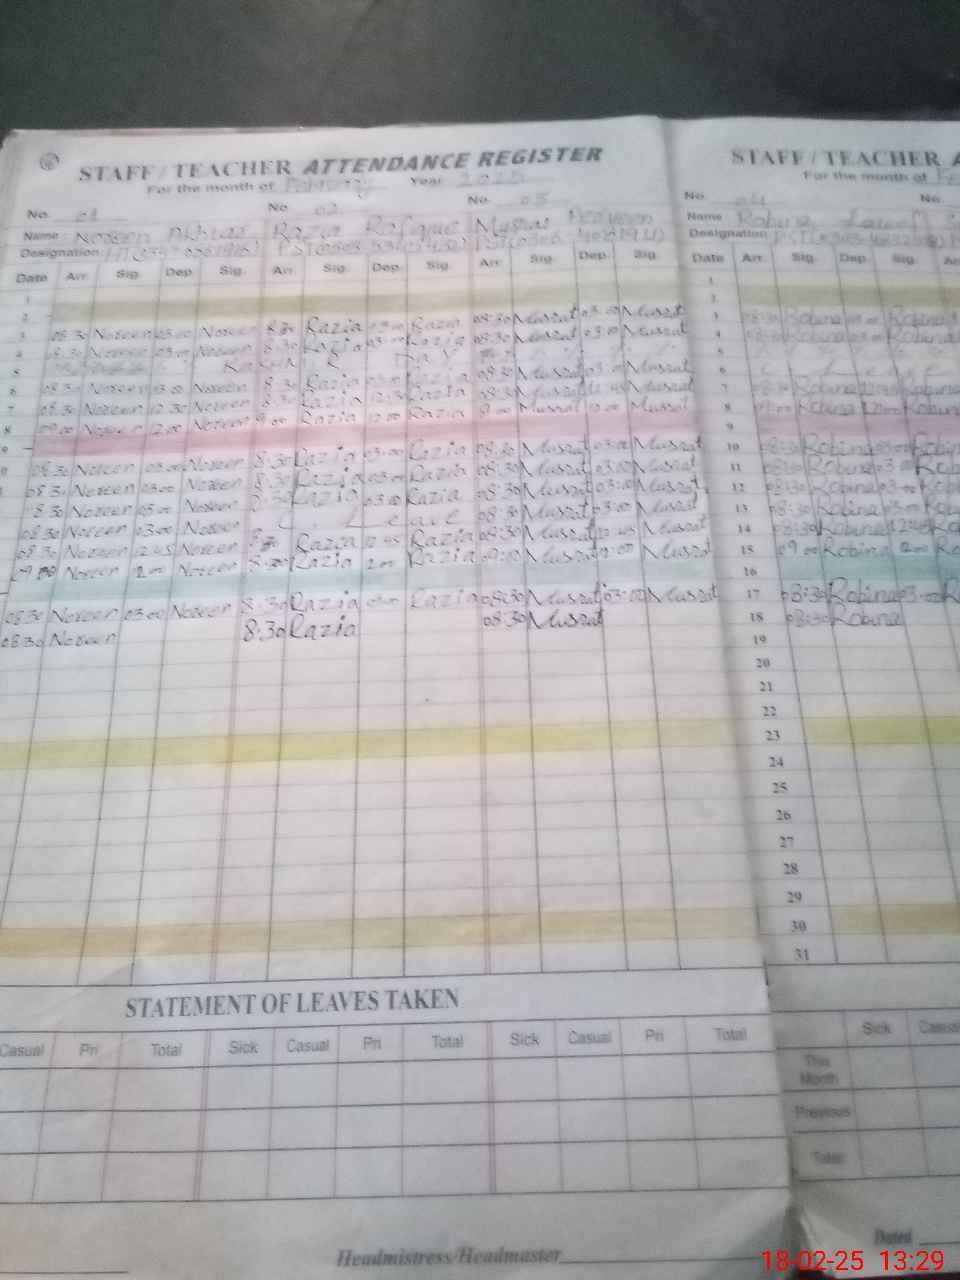 STAFF / TEACHER ATTENDANCE REGISTER
For the month of February Year 2025
No. 01 No. 02 No. 03
Name: Noreen Akhtar Razia Rafique Musrat Perveen
Designation
Date Arr. Sig. Dep. Sig. Arr. Sig. Dep. Sig. Arr. Sig. Dep. Sig.
1
2
3 08:30 Noreen 03:00 Noreen 8:30 Razia 03:00 Razia 08:30 Musrat 03:00 Musrat
4 08:30 Noreen 03:00 Noreen 8:30 Razia 03:00 Razia 08:30 Musrat 03:00 Musrat
5 Kashmir Day
6 08:30 Noreen 03:00 Noreen 8:30 Razia 03:00 Razia 08:30 Musrat 03:00 Musrat
7 08:30 Noreen 12:30 Noreen 8:30 Razia 12:30 Razia 08:30 Musrat 12:45 Musrat
8 09:00 Noreen 12:00 Noreen 9:00 Razia 12:00 Razia 9:00 Musrat 12:00 Musrat
9
08:30 Noreen 03:00 Noreen 8:30 Razia 03:00 Razia 08:30 Musrat 03:00 Musrat
08:30 Noreen 03:00 Noreen 8:30 Razia 03:00 Razia 08:30 Musrat 03:00 Musrat
08:30 Noreen 03:00 Noreen 8:30 Razia 03:00 Razia 08:30 Musrat 03:00 Musrat
08:30 Noreen 03:00 Noreen C Leave 08:30 Musrat 03:00 Musrat
08:30 Noreen 12:45 Noreen Razia 12:45 Razia 08:30 Musrat 12:45 Musrat
09:00 Noreen 12:00 Noreen Razia 12:00 Razia 09:00 Musrat 12:00 Musrat
08:30 Noreen 03:00 Noreen 8:30 Razia 03:00 Razia 08:30 Musrat 03:00 Musrat
08:30 Noreen 8:30 Razia 08:30 Musrat
STATEMENT OF LEAVES TAKEN
Casual Pri Total Sick Casual Pri Total Sick Casual Pri Total
Headmistress/Headmaster
STAFF / TEACHER A
For the month of Fe
No. 04 No.
Name Robina
Designation
Date Arr. Sig. Dep. Sig.
1
2
3 08:30 Robina 03:00 Robina
4 08:30 Robina 03:00 Robina
5
6 C Leave
7 08:30 Robina 12:45 Robina
8 09:00 Robina 12:00 Robina
9
10 08:30 Robina 03:00 Robin
11 08:30 Robina 03:00 Rob
12 08:30 Robina 03:00 Rob
13 08:30 Robina 03:00 Rob
14 08:30 Robina 12:45 Rob
15 09:00 Robina 12:00 Ro
16
17 08:30 Robina 03:00 R
18 08:30 Robina
19
20
21
22
23
24
25
26
27
28
29
30
31
Sick Casual
This Month
Previous
Total
Dated
18-02-25 13:29